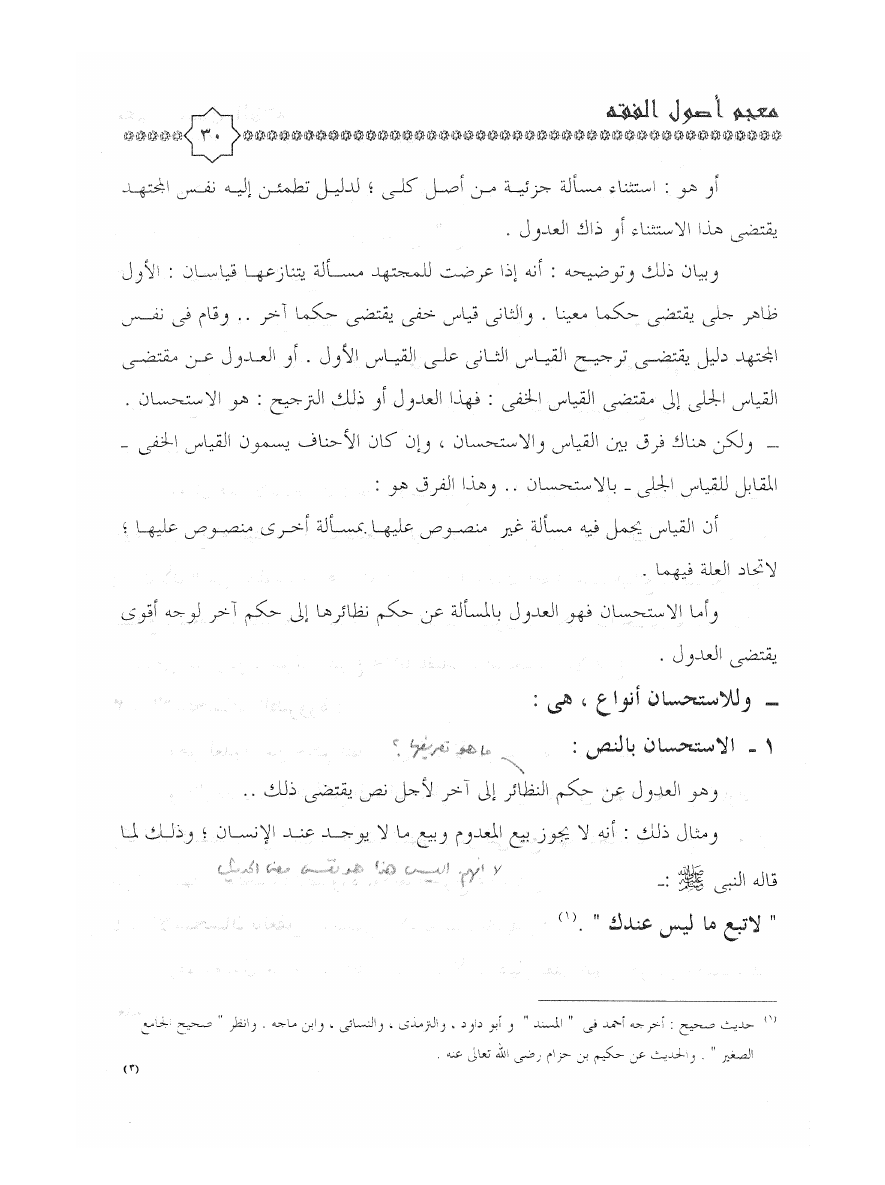 معجم أصول الفقه
٣٠
أو هو : استثناء مسألة جزئية من أصل كلى ؛ لدليل تطمئن إليه نفس المجتهد
يقتضى هذا الاستثناء أو ذاك العدول .
وبيان ذلك وتوضيحه : أنه إذا عرضت للمجتهد مسألة يتنازعها قياسان : الأول
ظاهر جلى يقتضى حكما معينا . والثانى قياس خفى يقتضى حكما آخر .. وقام فى نفس
المجتهد دليل يقتضى ترجيح القياس الثانى على القياس الأول . أو العدول عن مقتضى
القياس الجلى إلى مقتضى القياس الخفى : فهذا العدول أو ذلك الترجيح : هو الاستحسان .
ـ ولكن هناك فرق بين القياس والاستحسان ، وإن كان الأحناف يسمون القياس الخفى ـ
المقابل للقياس الجلى ـ بالاستحسان .. وهذا الفرق هو :
أن القياس يحمل فيه مسألة غير منصوص عليها بمسألة أخرى منصوص عليها ؛
لاتحاد العلة فيهما .
وأما الاستحسان فهو العدول بالمسألة عن حكم نظائرها إلى حكم آخر لوجه أقوى
يقتضى العدول .
ـ وللاستحسان أنواع ، هى :
١ ـ الاستحسان بالنص : ما هو تعريفها ؟
وهو العدول عن حكم النظائر إلى آخر لأجل نص يقتضى ذلك ..
ومثال ذلك : أنه لا يجوز بيع المعدوم وبيع ما لا يوجد عند الإنسان ؛ وذلك لما
قاله النبى ﷺ :ـ لا أفهم أليس هذا هو نفس معنى
" لاتبع ما ليس عندك " .(١)
(١) حديث صحيح : أخرجه أحمد فى " المسند " و أبو داود ، والترمذى ، والنسائى ، وابن ماجه . وانظر " صحيح الجامع
الصغير " . والحديث عن حكيم بن حزام رضى الله تعالى عنه .
(٣)